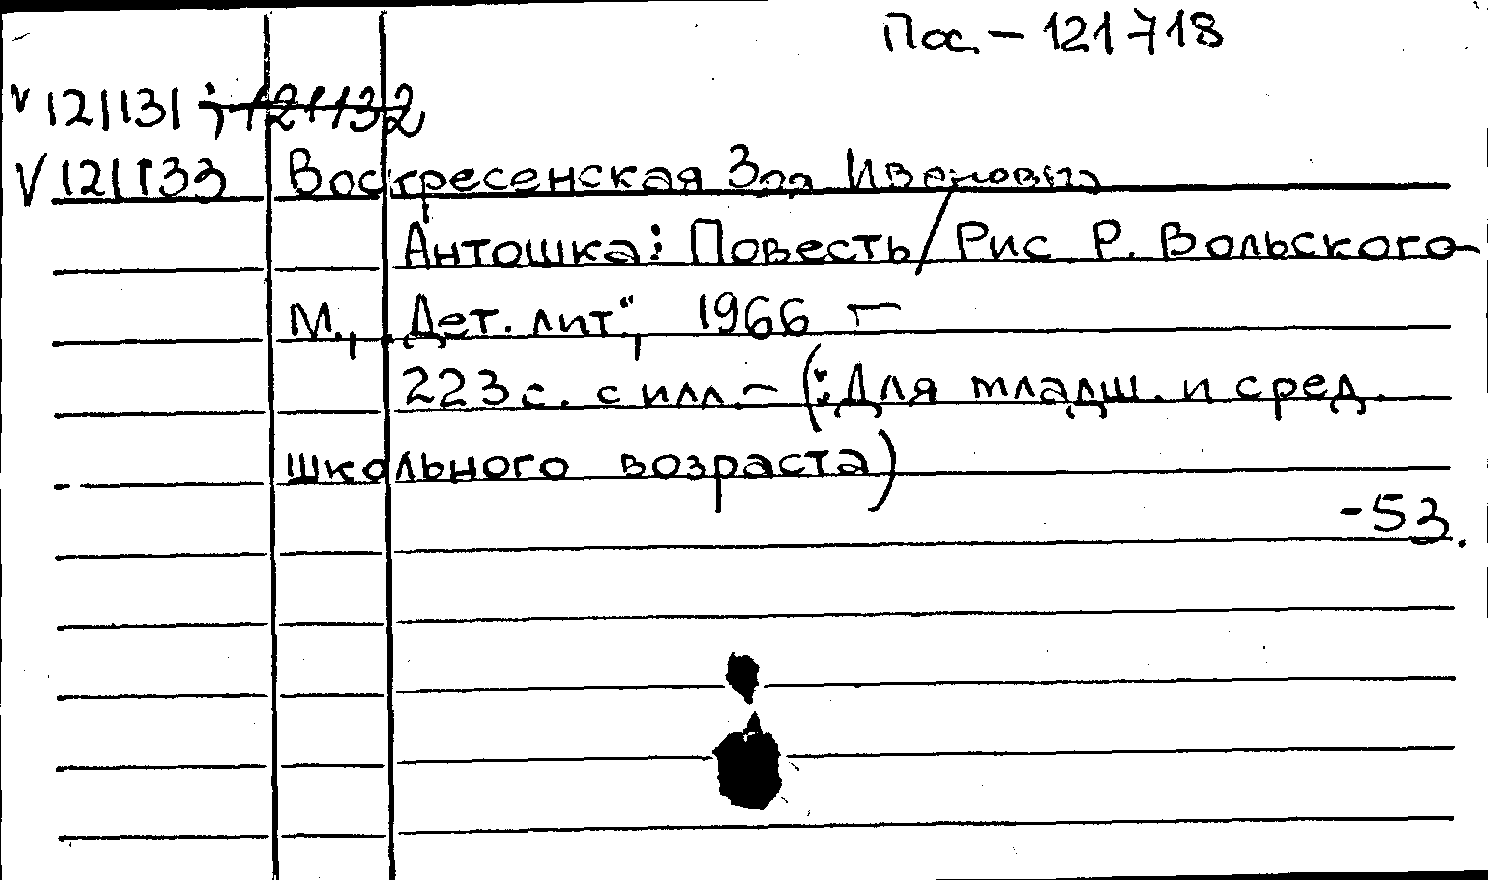 Пос. – 121718
V 121131; 121132
V 121133 Воскресенская Зоя Ивановна
Антошка: Повесть/Рис Р. Вольского-
М., „Дет. лит“, 1966 –
223с. с илл. – (: Для младш. и сред.
школьного возраста)
-53.